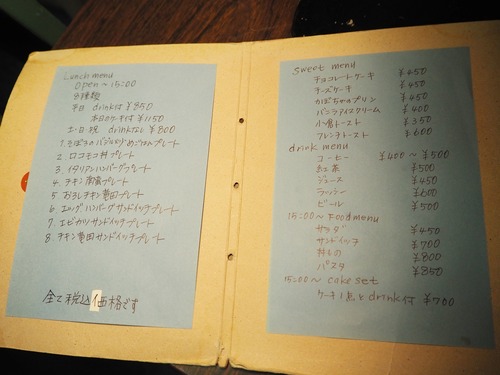 Lunch menu
open～15:00
8種類
平日 drink付 ¥850
本日のケーキ付 ¥1150
土・日・祝 drinkなし ¥800
プレート
2. ロコモコ丼プレート
3. イタリアンハンバーグプレート
4. チキン南蛮プレート
5. おろしチキン竜田プレート
6. エッグハンバーグサンドイッチプレート
7. エビカツサンドイッチプレート
8. チキン竜田サンドイッチプレート
全て税込価格です
sweet menu
チョコレートケーキ ¥450
チーズケーキ ¥450
かぼちゃのプリン ¥450
バニラアイスクリーム ¥400
小倉トースト ¥350
フレンチトースト ¥600
drink menu
コーヒー ¥400～¥500
紅茶 ¥500
ジュース ¥450
ラッシー ¥600
ビール ¥500
15:00～ Food menu
サラダ ¥450
サンドイッチ ¥700
丼もの ¥800
パスタ ¥850
15:00～ cake set
ケーキ1点とdrink付 ¥700